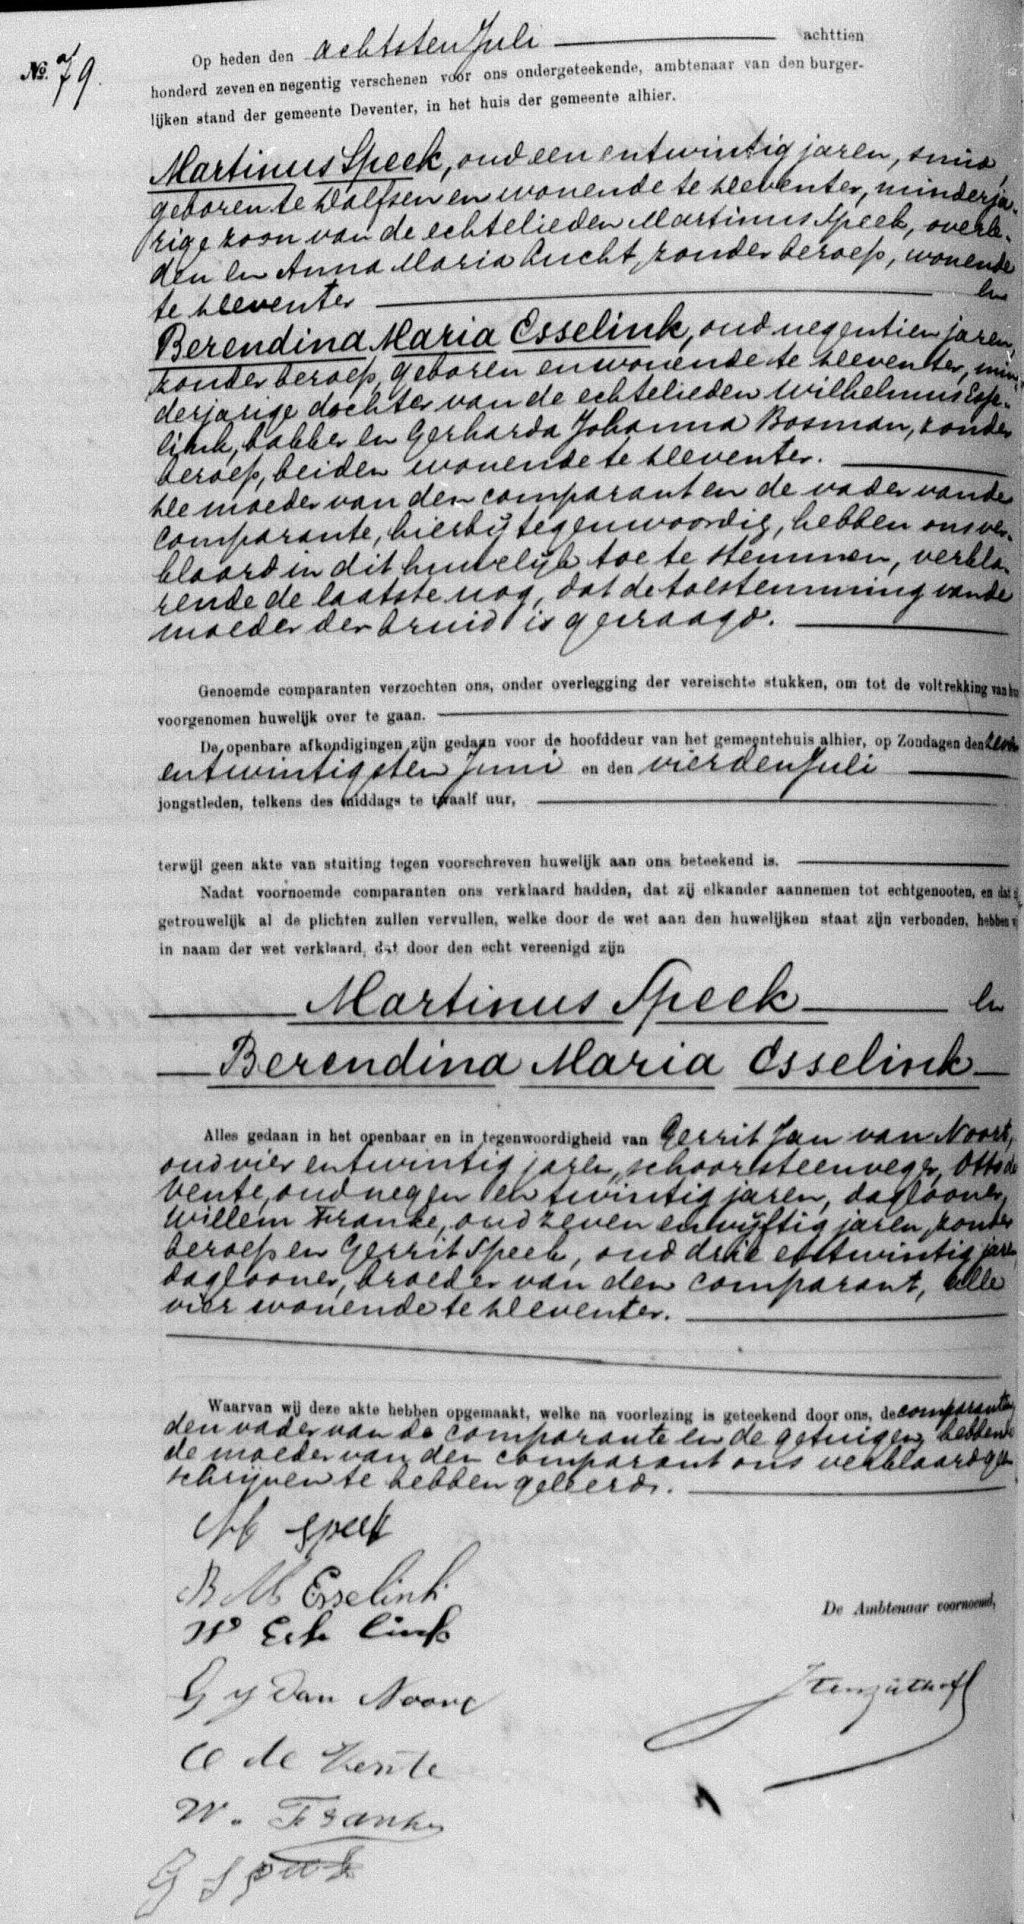 No. 79.
Op heden den achtsten Juli achttien
honderd zeven en negentig verschenen voor ons ondergeteekende, ambtenaar van den burger-
lijken stand der gemeente Deventer, in het huis der gemeente alhier.
Martinus Speek, oud een en twintig jaren, smid,
geboren te Dalfsen en wonende te Deventer, minderja-
rige zoon van de echtelieden Martinus Speek, overle-
den en Anna Maria Lucht, zonder beroep, wonende
te Deventer en
Berendina Maria Esselink, oud negentien jaren,
zonder beroep, geboren en wonende te Deventer, min-
derjarige dochter van de echtelieden Wilhelmus Esse-
link, bakker en Gerharda Johanna Bosman, zonder
beroep, beiden wonende te Deventer.
De moeder van den comparant en de vader van de
comparante, hierbij tegenwoordig, hebben ons ver-
klaard in dit huwelijk toe te stemmen, verkla-
rende de laatste nog, dat de toestemming van de
moeder der bruid is gevraagd.
Genoemde comparanten verzochten ons, onder overlegging der vereischte stukken, om tot de voltrekking van hun
voorgenomen huwelijk over te gaan.
De openbare afkondigingen zijn gedaan voor de hoofddeur van het gemeentehuis alhier, op Zondagen den zeven
en twintigsten Juni en den vierden Juli
jongstleden, telkens des middags te twaalf uur,
terwijl geen akte van stuiting tegen voorschreven huwelijk aan ons beteekend is.
Nadat voornoemde comparanten ons verklaard hadden, dat zij elkander aannemen tot echtgenooten, en dat zij
getrouwelijk al de plichten zullen vervullen, welke door de wet aan den huwelijken staat zijn verbonden, hebben wij
in naam der wet verklaard, dat door den echt vereenigd zijn
Martinus Speek en
Berendina Maria Esselink
Alles gedaan in het openbaar en in tegenwoordigheid van Gerrit Jan van Noort,
oud vier en twintig jaren, schoorsteenveger, Otto de
Vente, oud negen en twintig jaren, daglooner,
Willem Franke, oud zeven en vijftig jaren, zonder
beroep en Gerrit Speek, oud drie en twintig jaren
daglooner, broeder van den comparant, alle
vier wonende te Deventer.
Waarvan wij deze akte hebben opgemaakt, welke na voorlezing is geteekend door ons, de comparanten,
den vader van de comparante en de getuigen, hebbende
de moeder van den comparant ons verklaard geen
schrijven te hebben geleerd.
M Speek
B M Esselink
W Esselink
De Ambtenaar voornoemd,
G J van Noort
O de Vente
W. Franke
G Speek